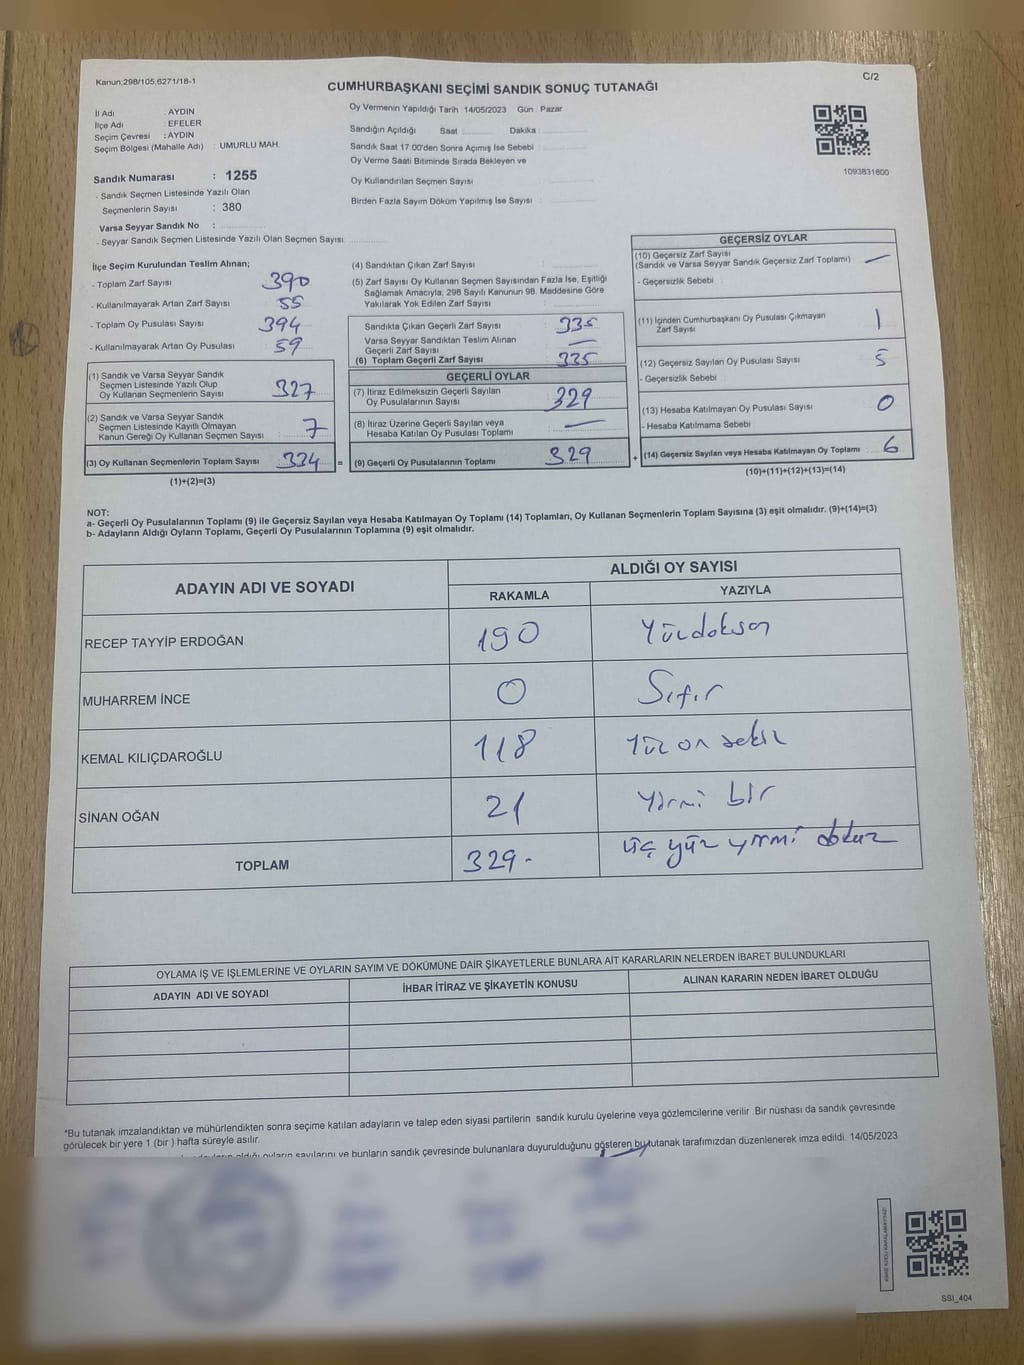 Kanun:298/105.6271/18-1
C/2
CUMHURBAŞKANI SEÇİMİ SANDIK SONUÇ TUTANAĞI
İl Adı : AYDIN
İlçe Adı : EFELER
Seçim Çevresi : AYDIN
Seçim Bölgesi (Mahalle Adı) : UMURLU MAH.
Oy Vermenin Yapıldığı Tarih 14/05/2023 Gün : Pazar
Sandığın Açıldığı Saat : Dakika :
Sandık Saat 17:00'den Sonra Açımış İse Sebebi :
Oy Verme Saati Bitiminde Sırada Bekleyen ve
Oy Kullandırılan Seçmen Sayısı
Birden Fazla Sayım Döküm Yapılmış İse Sayısı :
1093831800
Sandık Numarası : 1255
- Sandık Seçmen Listesinde Yazılı Olan
Seçmenlerin Sayısı : 380
Varsa Seyyar Sandık No :
- Seyyar Sandık Seçmen Listesinde Yazılı Olan Seçmen Sayısı:
İlçe Seçim Kurulundan Teslim Alınan;
- Toplam Zarf Sayısı 390
- Kullanılmayarak Artan Zarf Sayısı 55
- Toplam Oy Pusulası Sayısı 394
- Kullanılmayarak Artan Oy Pusulası 59
(1) Sandık ve Varsa Seyyar Sandık
Seçmen Listesinde Yazılı Olup
Oy Kullanan Seçmenlerin Sayısı 327
(2) Sandık ve Varsa Seyyar Sandık
Seçmen Listesinde Kayıtlı Olmayan
Kanun Gereği Oy Kullanan Seçmen Sayısı 7
(3) Oy Kullanan Seçmenlerin Toplam Sayısı 334 =
(1)+(2)=(3)
(4) Sandıktan Çıkan Zarf Sayısı :
(5) Zarf Sayısı Oy Kullanan Seçmen Sayısından Fazla İse, Eşitliği
Sağlamak Amacıyla, 298 Sayılı Kanunun 98. Maddesine Göre
Yakılarak Yok Edilen Zarf Sayısı :
Sandıkta Çıkan Geçerli Zarf Sayısı 335
Varsa Seyyar Sandıktan Teslim Alınan
Geçerli Zarf Sayısı —
(6) Toplam Geçerli Zarf Sayısı 335
GEÇERLİ OYLAR
(7) İtiraz Edilmeksizin Geçerli Sayılan
Oy Pusulalarının Sayısı 329
(8) İtiraz Üzerine Geçerli Sayılan veya
Hesaba Katılan Oy Pusulası Toplamı —
(9) Geçerli Oy Pusulalarının Toplamı 329 +
GEÇERSİZ OYLAR
(10) Geçersiz Zarf Sayısı
(Sandık ve Varsa Seyyar Sandık Geçersiz Zarf Toplamı) —
- Geçersizlik Sebebi :
(11) İçinden Cumhurbaşkanı Oy Pusulası Çıkmayan
Zarf Sayısı 1
(12) Geçersiz Sayılan Oy Pusulası Sayısı 5
- Geçersizlik Sebebi :
(13) Hesaba Katılmayan Oy Pusulası Sayısı 0
- Hesaba Katılmama Sebebi
(14) Geçersiz Sayılan veya Hesaba Katılmayan Oy Toplamı 6
(10)+(11)+(12)+(13)=(14)
NOT:
a- Geçerli Oy Pusulalarının Toplamı (9) ile Geçersiz Sayılan veya Hesaba Katılmayan Oy Toplamı (14) Toplamları, Oy Kullanan Seçmenlerin Toplam Sayısına (3) eşit olmalıdır. (9)+(14)=(3)
b- Adayların Aldığı Oyların Toplamı, Geçerli Oy Pusulalarının Toplamına (9) eşit olmalıdır.
ADAYIN ADI VE SOYADI
ALDIĞI OY SAYISI
RAKAMLA YAZIYLA
RECEP TAYYİP ERDOĞAN 190 Yüzdoksan
MUHARREM İNCE 0 Sıfır
KEMAL KILIÇDAROĞLU 118 Yüz on sekiz
SİNAN OĞAN 21 Yirmi bir
TOPLAM 329- üç yüz yirmi dokuz
OYLAMA İŞ VE İŞLEMLERİNE VE OYLARIN SAYIM VE DÖKÜMÜNE DAİR ŞİKAYETLERLE BUNLARA AİT KARARLARIN NELERDEN İBARET BULUNDUKLARI
ADAYIN ADI VE SOYADI
İHBAR İTİRAZ VE ŞİKAYETİN KONUSU
ALINAN KARARIN NEDEN İBARET OLDUĞU
*Bu tutanak imzalandıktan ve mühürlendikten sonra seçime katılan adayların ve talep eden siyasi partilerin sandık kurulu üyelerine veya gözlemcilerine verilir .Bir nüshası da sandık çevresinde
görülecek bir yere 1 (bir ) hafta süreyle asılır.
oyların sayılarını ve bunların sandık çevresinde bulunanlara duyurulduğunu gösteren bu tutanak tarafımızdan düzenlenerek imza edildi. 14/05/2023
SSI_404